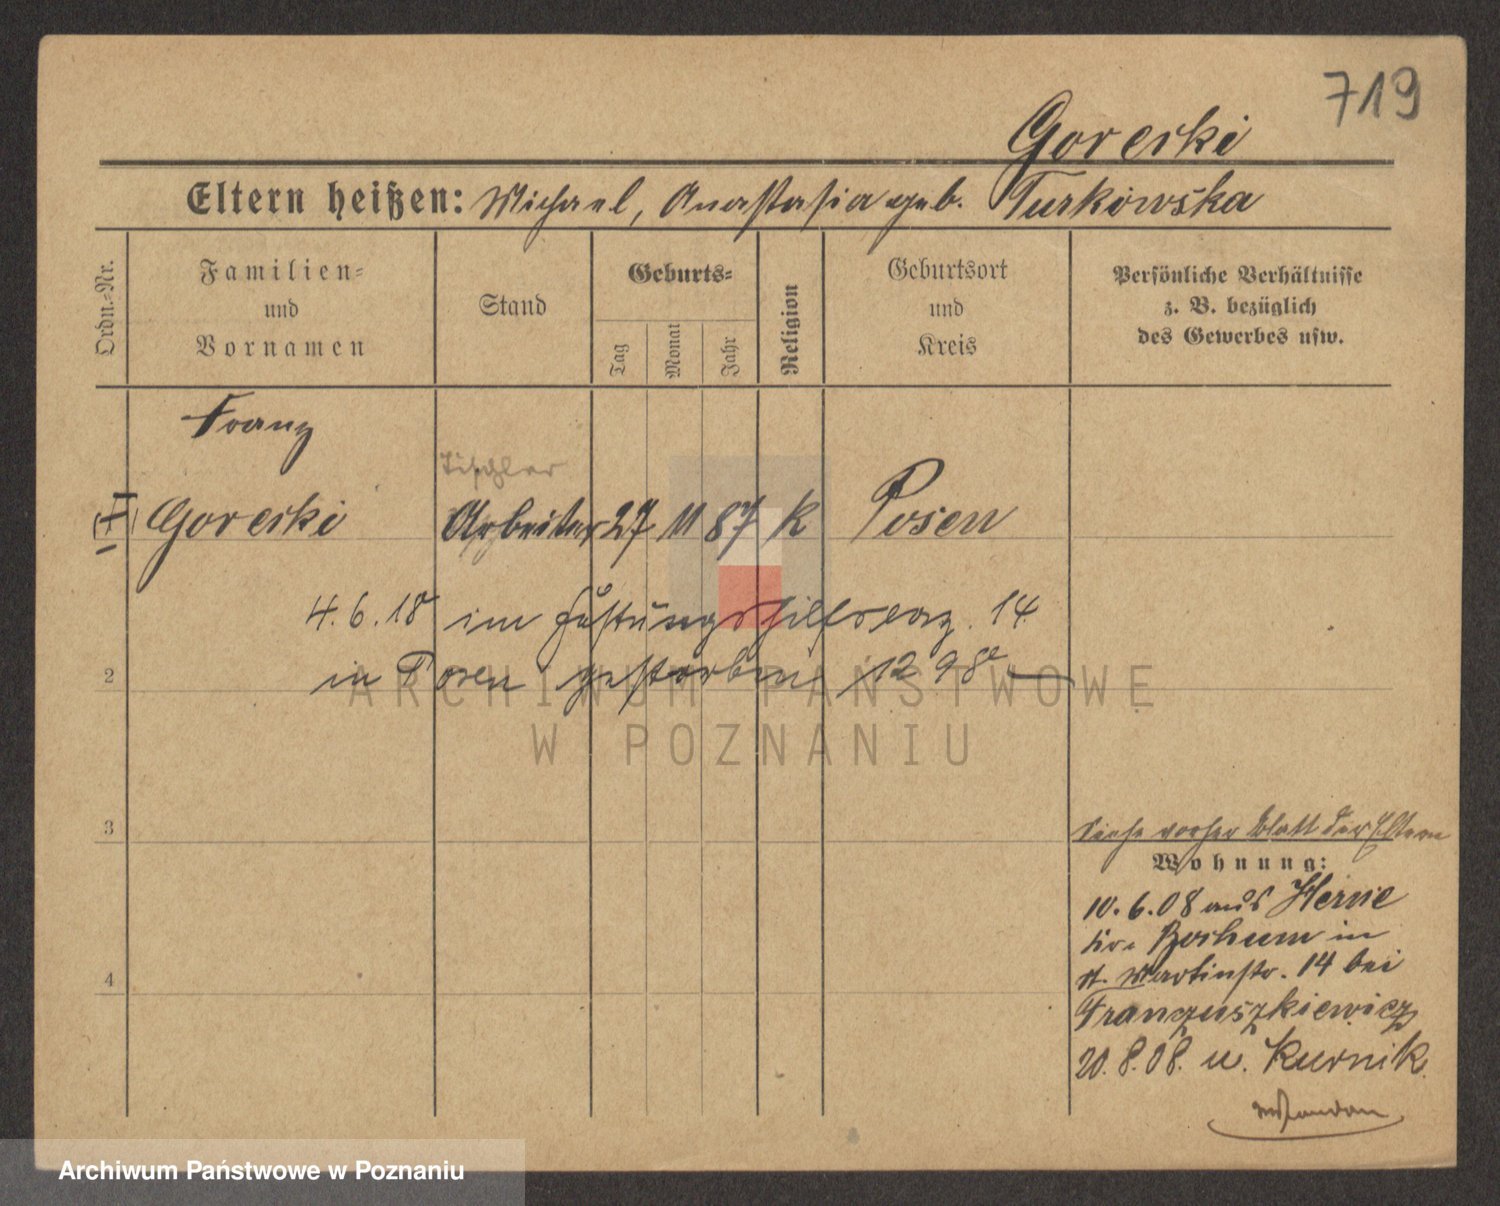 719
Gorecki
Eltern heißen: Michael, Anastasia geb. Turkowska
Ordn.=Nr.
Familien=
und
Vornamen
Stand
Geburts=
Tag
Monat
Jahr
Religion
Geburtsort
und
Kreis
Persönliche Verhältnisse
z. B. bezüglich
des Gewerbes usw.
Franz
Tischler
Gorecki Arbeiter 27 11 87 K Posen
4. 6. 18 im Festungshilfslaz. 14
2 in Posen gestorben 1298
ARCHIWUM PAŃSTWOWE
W POZNANIU
3
Siehe vorher Blatt der Eltern
Wohnung:
10. 6. 08 aus Herne
Kr. Bochum in
St. Martinstr. 14 bei
4
Franzuszkiewicz
20. 8. 08. n. Kurnik
Archiwum Państwowe w Poznaniu